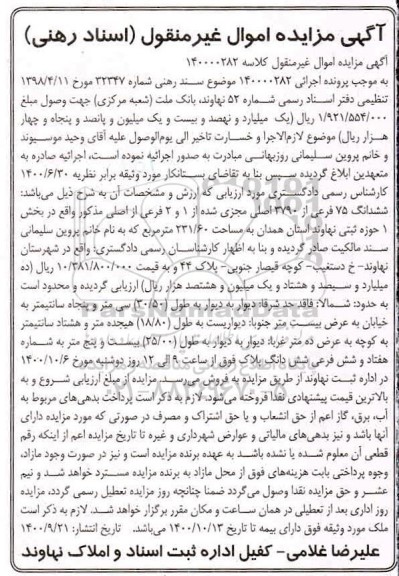 آگهی مزایده اموال غیرمنقول (اسناد رهنی)
آگهی مزایده اموال غیرمنقول کلاسه ۱۴۰۰۰۰۲۸۲
به موجب پرونده اجرائی ۱۴۰۰۰۰۲۸۲ موضوع سند رهنی شماره ۳۲۳۴۷ مورخ ۱۳۹۸/۴/۱۱
تنظیمی دفتر اسناد رسمی شماره ۵۲ نهاوند، بانک ملت (شعبه مرکزی) جهت وصول مبلغ
۱/۹۲۱/۵۵۴/۰۰۰ ریال (یک میلیارد و نهصد و بیست و یک میلیون و پانصد و پنجاه و چهار
هزار ریال) موضوع لازم‌الاجرا و خسارت تاخیر الی یوم‌الوصول علیه آقای وحید موسیوند
و خانم پروین سلیمانی روزبهانی مبادرت به صدور اجرائیه نموده است، اجرائیه صادره به
متعهدین ابلاغ گردیده سپس بنا به تقاضای بستانکار مورد وثیقه برابر نظریه ۱۴۰۰/۶/۳۰
کارشناس رسمی دادگستری مورد ارزیابی که ارزش و مشخصات آن به شرح ذیل می‌باشد:
ششدانگ ۷۵ فرعی از ۳۷۹۰ اصلی مجزی شده از ۱ و ۲ فرعی از اصلی مذکور واقع در بخش
۱ حوزه ثبتی نهاوند استان همدان به مساحت ۲۳۱/۶۰ مترمربع که به نام خانم پروین سلیمانی
سند مالکیت صادر گردیده و بنا به اظهار کارشناسان رسمی دادگستری: واقع در شهرستان
نهاوند– خ دستغیب– کوچه قیصار جنوبی– پلاک ۴۴ و به قیمت ۱۰/۳۸۱/۸۰۰/۰۰۰ ریال (ده
میلیارد و سیصد و هشتاد و یک میلیون و هشتصد هزار ریال) ارزیابی گردیده و محدود است
به حدود: شمالاً: فاقد حد شرقا: دیوار به دیوار به طول (۳۰/۵۰) سی متر و پنجاه سانتیمتر به
خیابان به عرض بیست متر جنوبا: دیواریست به طول (۱۸/۸۰) هیجده متر و هشتاد سانتیمتر
به کوچه به عرض ده متر غربا: دیوار به دیوار به طول (۲۵/۰۰) بیست و پنج متر به شماره
هفتاد و شش فرعی شش دانگ پلاک فوق از ساعت ۹ الی ۱۲ روز دوشنبه مورخ ۱۴۰۰/۱۰/۶
در اداره ثبت نهاوند از طریق مزایده به فروش می‌رسد. مزایده از مبلغ ارزیابی شروع و به
بالاترین قیمت پیشنهادی نقدا فروخته می‌شود، لازم به ذکر است پرداخت بدهی‌های مربوط به
آب، برق، گاز اعم از حق انشعاب و یا حق اشتراک و مصرف در صورتی که مورد مزایده دارای
آنها باشد و نیز بدهی‌های مالیاتی و عوارض شهرداری و غیره تا تاریخ مزایده اعم از اینکه رقم
قطعی آن معلوم شده یا نشده باشد به عهده برنده مزایده است و نیز در صورت وجود مازاد،
وجوه پرداختی بابت هزینه‌های فوق از محل مازاد به برنده مزایده مسترد خواهد شد و نیم
عشر و حق مزایده نقدا وصول می‌گردد ضمنا چنانچه روز مزایده تعطیل رسمی گردد، مزایده
روز اداری بعد از تعطیلی در همان ساعت و مکان مقرر برگزار خواهد شد. لازم به ذکر است
ملک مورد وثیقه فوق دارای بیمه تا تاریخ ۱۴۰۰/۱۰/۱۳ می‌باشد. تاریخ انتشار: ۱۴۰۰/۹/۲۱
علیرضا غلامی– کفیل اداره ثبت اسناد و املاک نهاوند
ParsNamadData